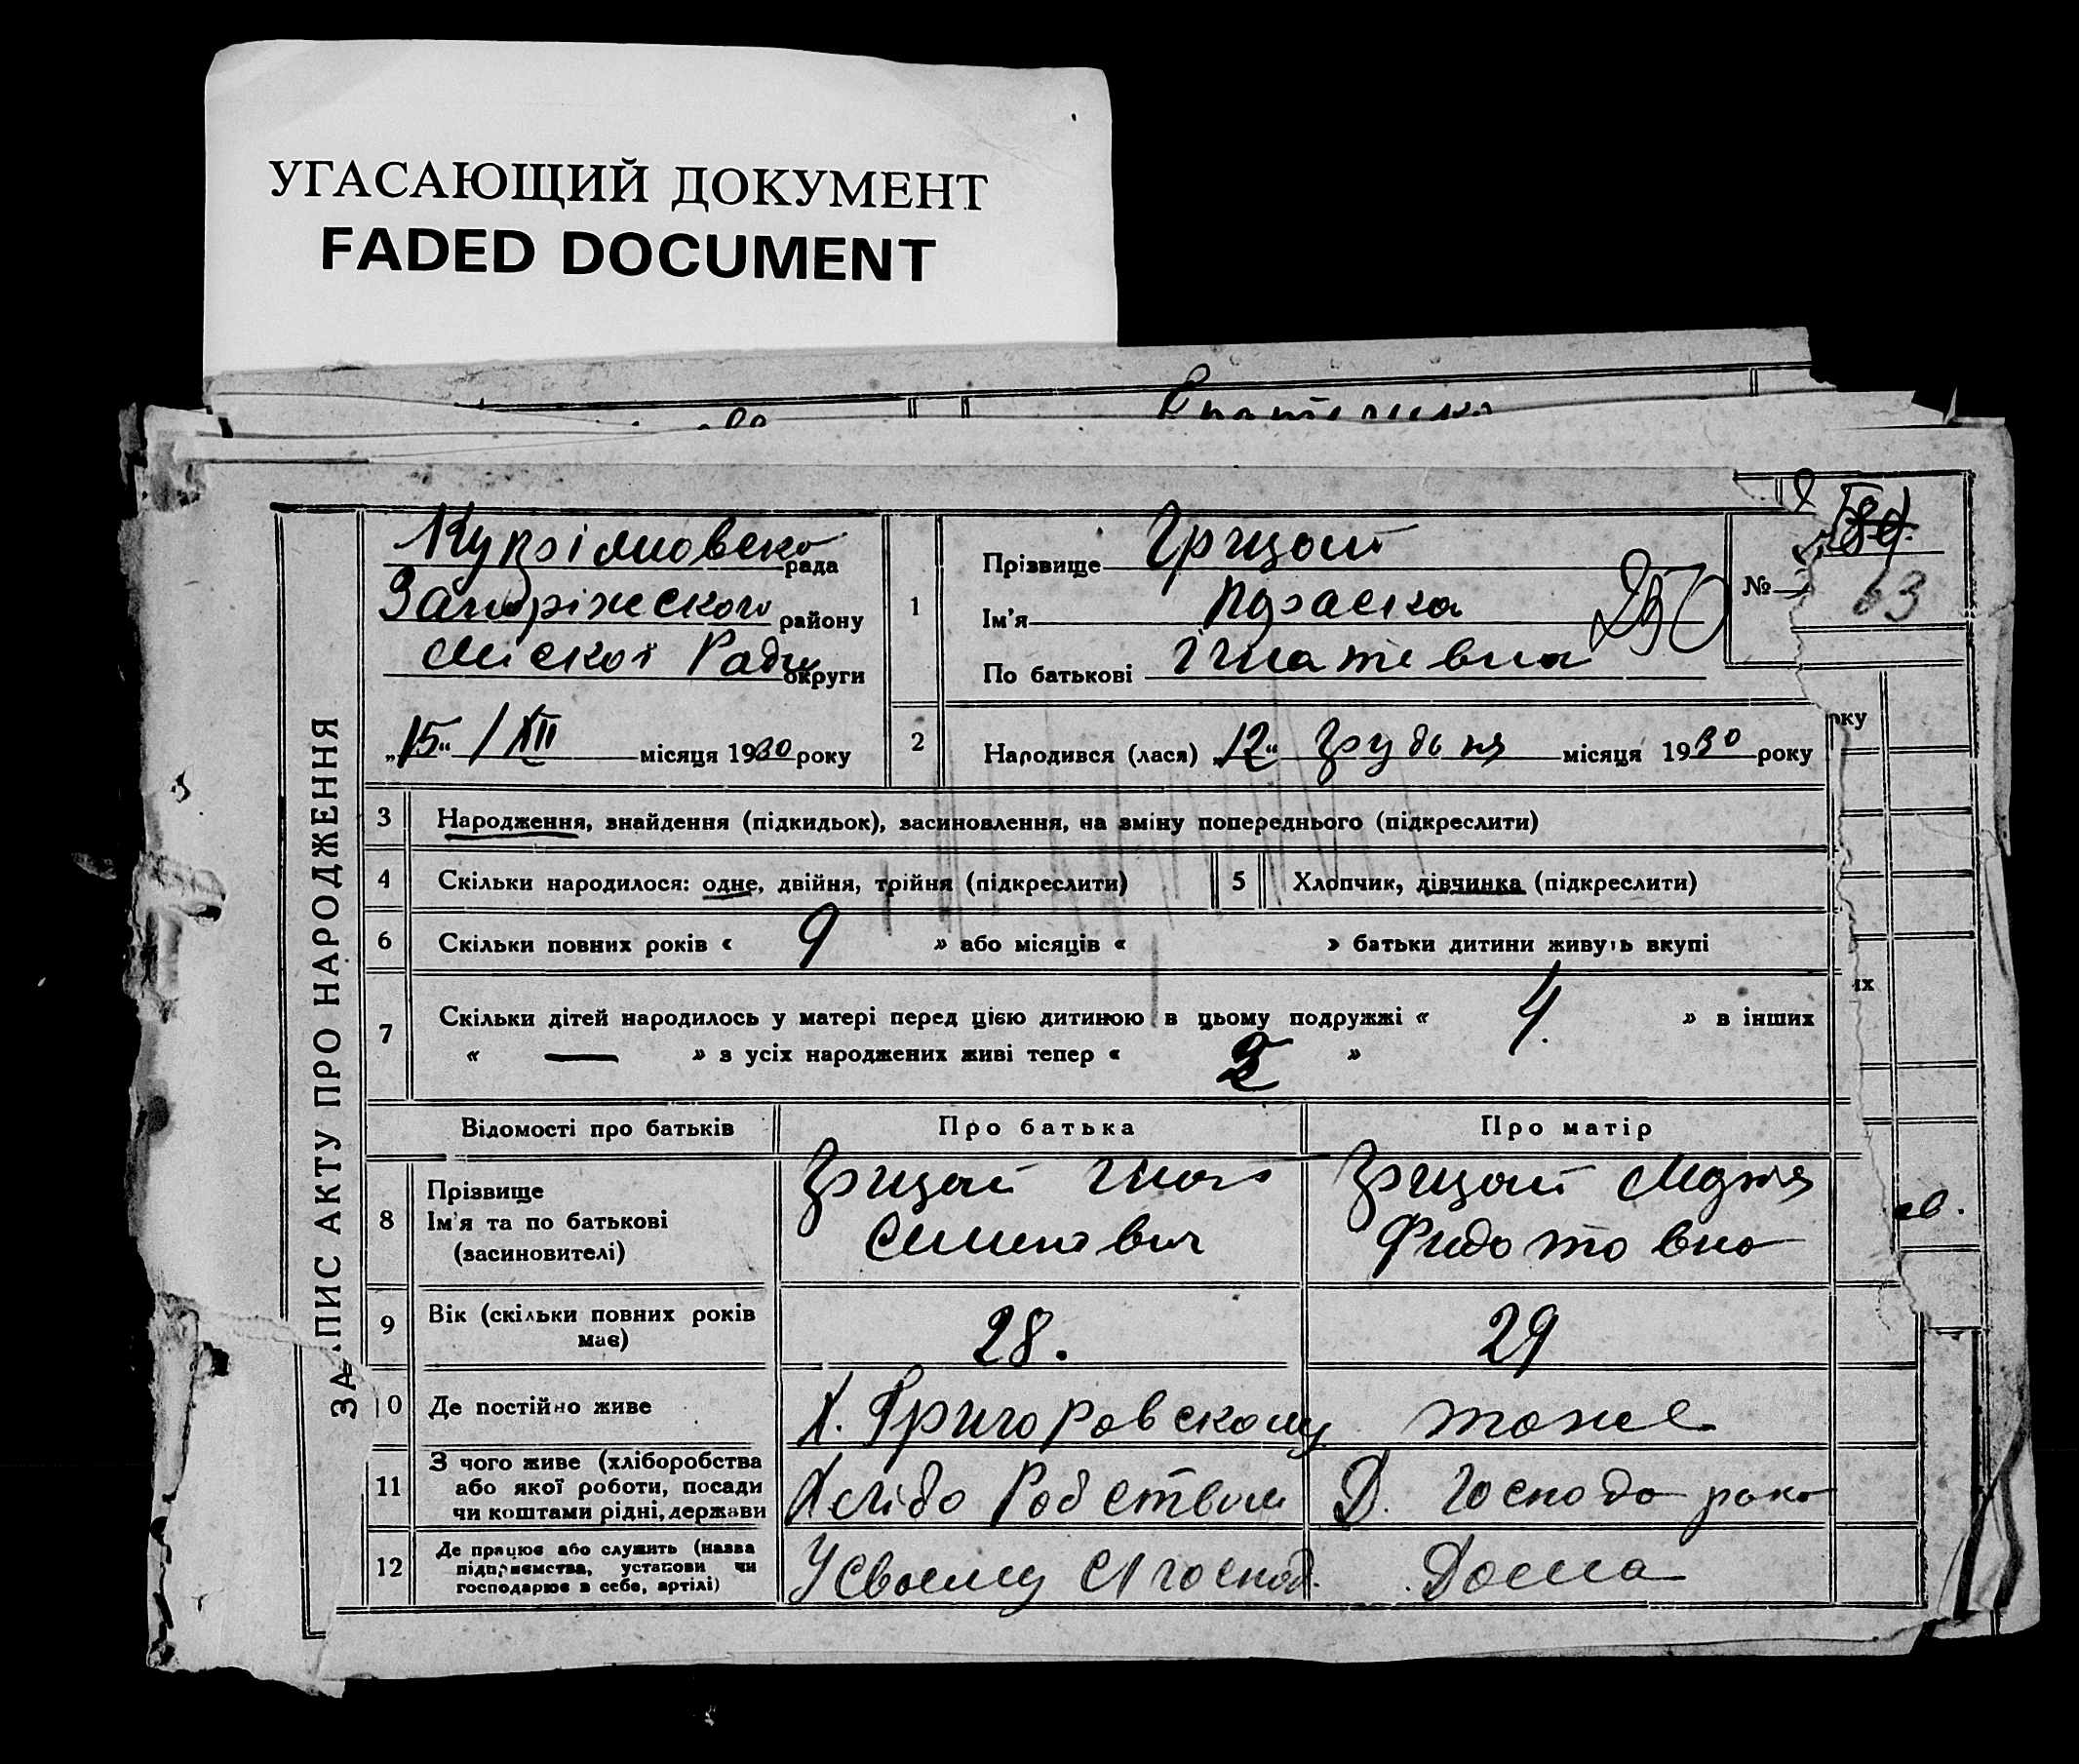 УГАСАЮЩИЙ ДОКУМЕНТ
FADED DOCUMENT
ЗАПИС АКТУ ПРО НАРОДЖЕННЯ
рада
району
Міскої Ради округи
„15“ / XII місяця 1930 року
1
Прізвище Грицай
Ім'я Параска
По батькові Ігнатевна
№
63
2
Народився (лася) „12“ Грудьня місяця 1930 року
оку
3 Народження, знайдення (підкидьок), засиновлення, на зміну попереднього (підкреслити)
4 Скільки народилося: одне, двійня, трійня (підкреслити)
5 Хлопчик, дівчинка (підкреслити)
6 Скільки повних років « 9 » або місяців « » батьки дитини живуть вкупі
их
7 Скільки дітей народилось у матері перед цією дитиною в цьому подружжі « 4. » в інших
« — » з усіх народжених живі тепер « »
Відомості про батьків
Про батька
Про матір
8
Прізвище
Ім'я та по батькові
(засиновителі)
Грицай Ігнат
Семенович
Грицай Марія
Федотовна
9
Вік (скільки повних років
має)
28.
29
0 Де постійно живе
Х. Григоровскому
тоже
11
З чого живе (хліборобства
або якої роботи, посади
чи коштами рідні, держави
Хлібо Робством
Д. Господарка
12
Де працює або служить (назва
підприємства, установи чи
господарює в себе, артілі)
У своему С/господ.
Дома